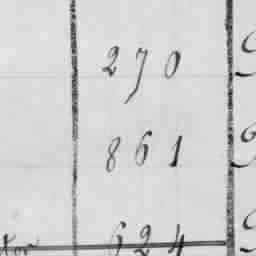 270
861
624